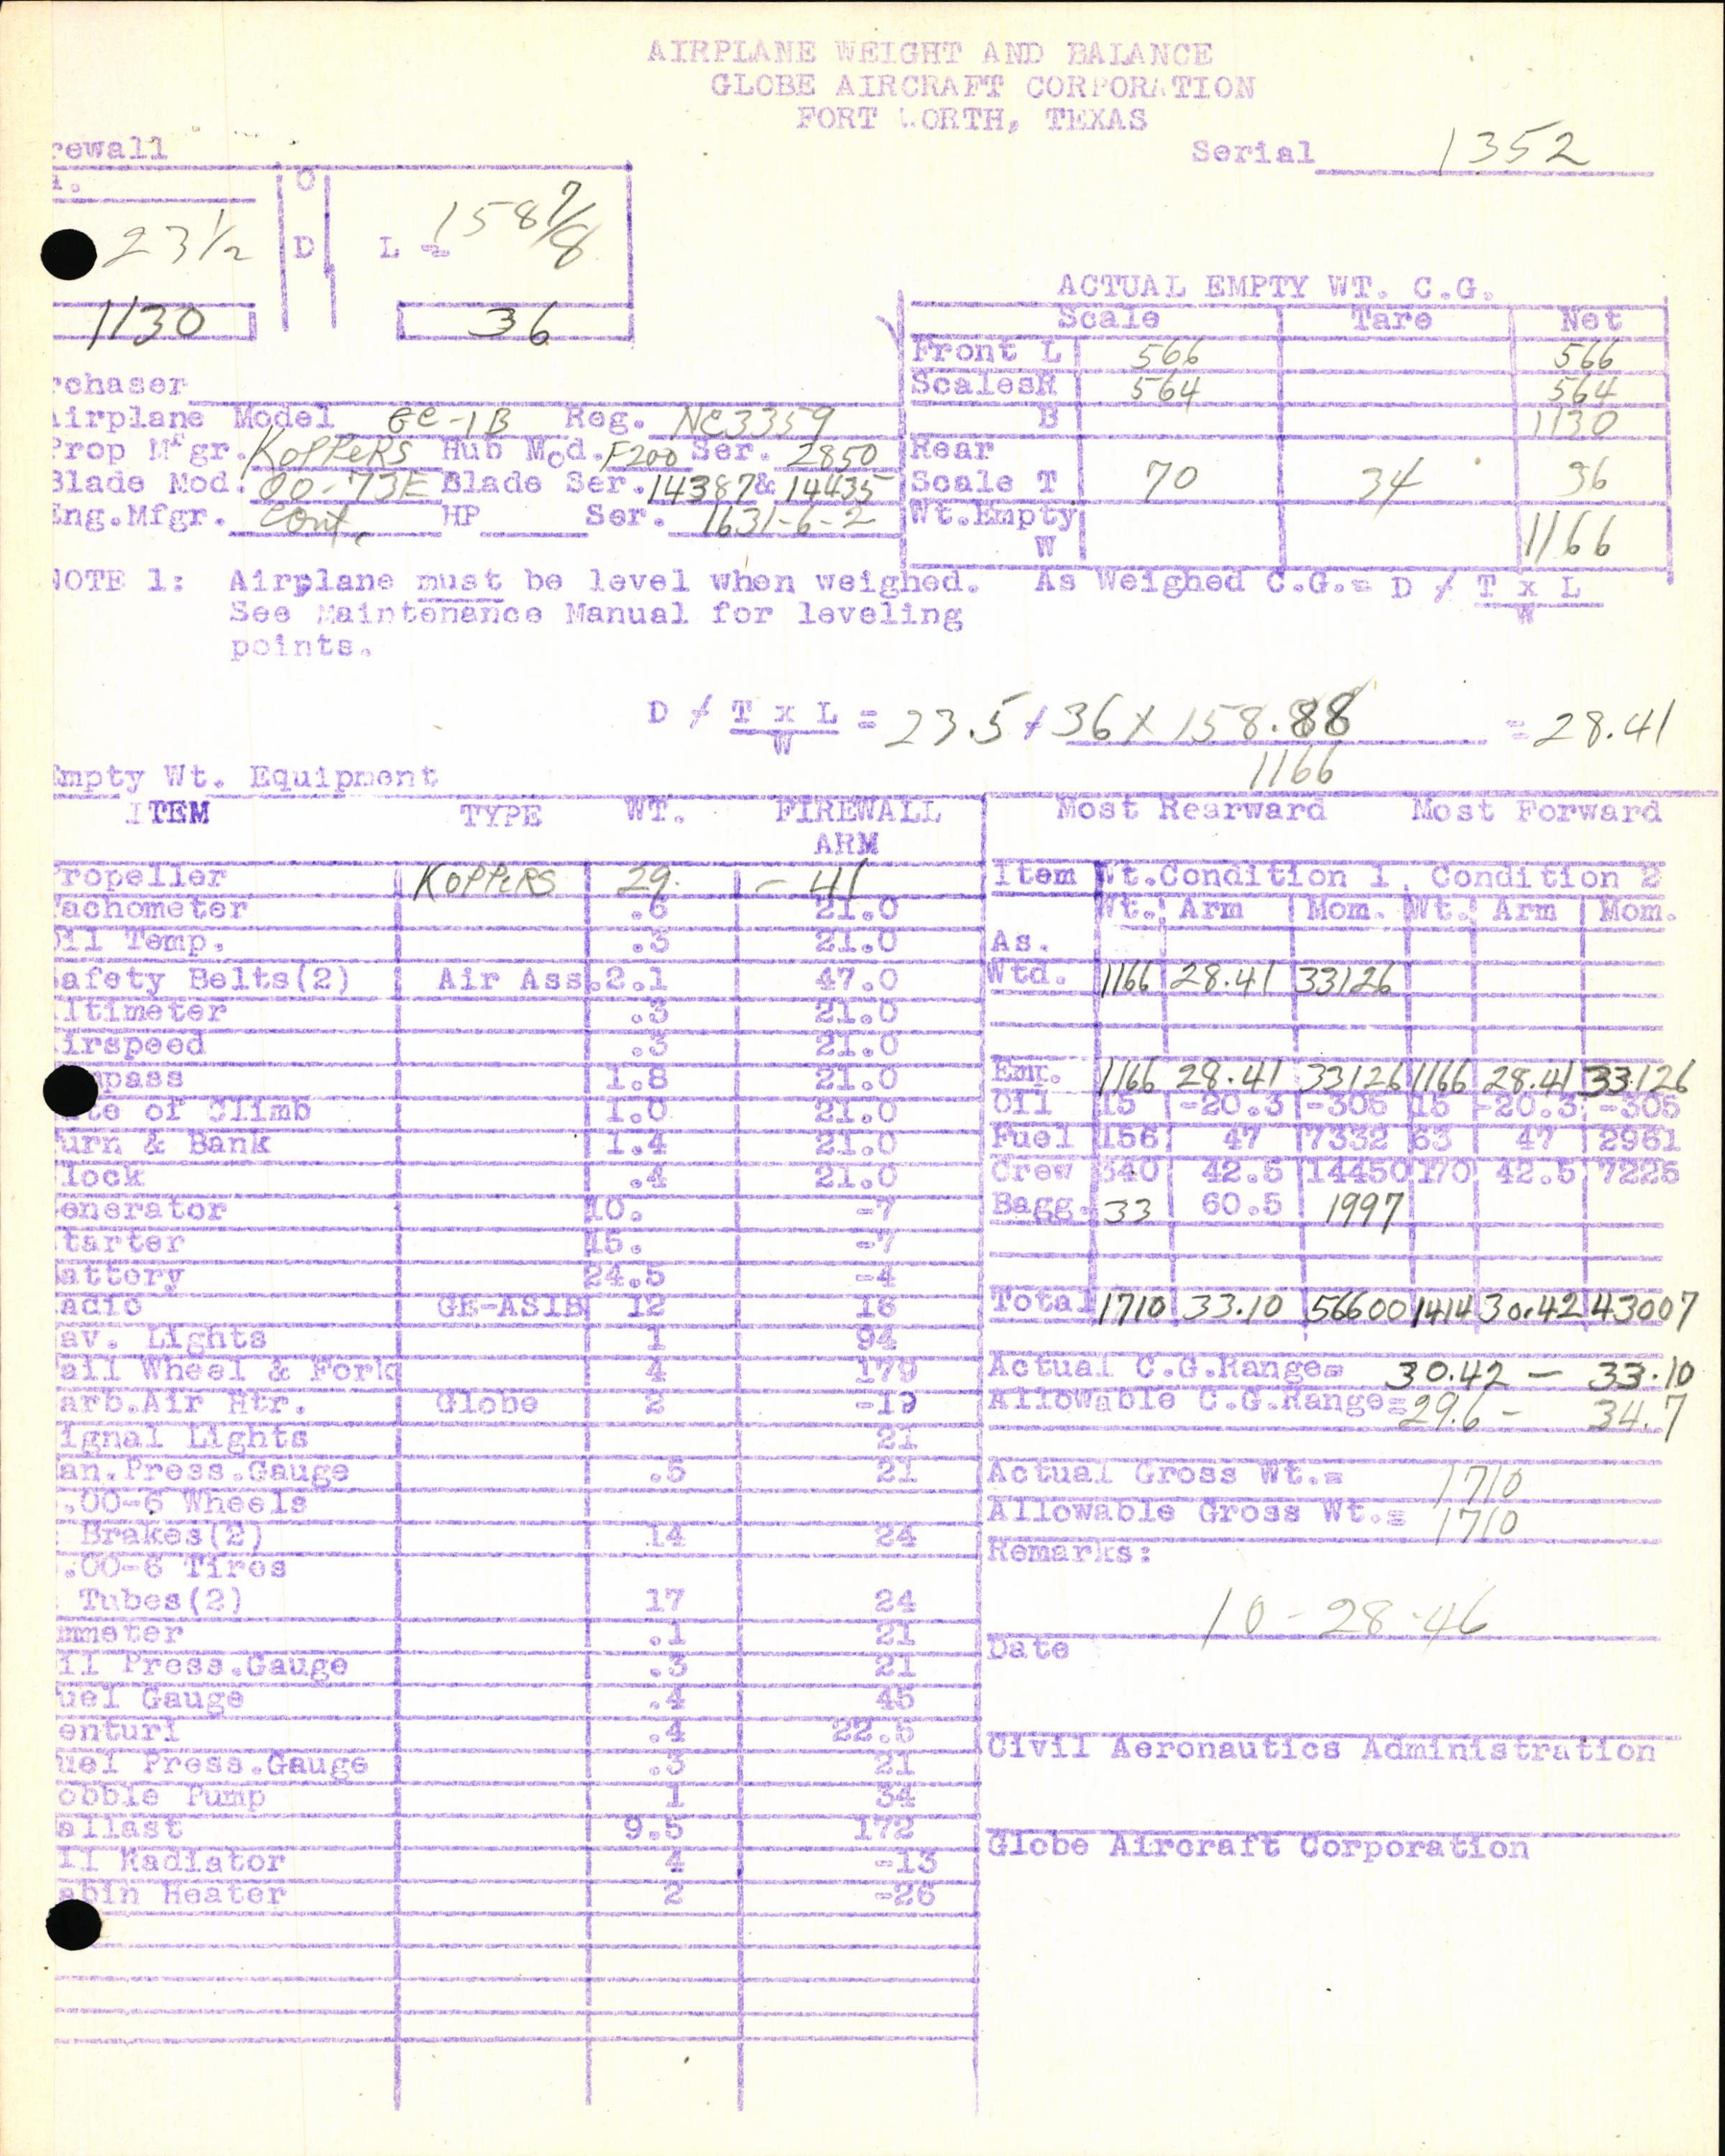 AIRPLANE WEIGHT AND BALANCE
GLOBE AIRCRAFT CORPORATION
FORT WORTH, TEXAS
rewall
Serial 1352
23 1/2 O D L = 158 7/8
1130 36
ACTUAL EMPTY WT. C.G.
Scale Tare Net
Front L 566 566
ScalesR 564 564
B 1130
Rear
Scale T 70 34 36
Wt.Empty
W 1166
rchaser
Airplane Model GC-1B Reg. NC3359
Prop Mfgr. KOPPERS Hub Mod. F200 Ser. 2850
Blade Mod. 00-73E Blade Ser. 14387 & 14435
Eng.Mfgr. Cont. HP Ser. 1631-6-2
NOTE 1: Airplane must be level when weighed. As Weighed C.G.= D / T x L
W
See Maintenance Manual for leveling
points.
D / T x L = 23.5 + 36 x 158.88 = 28.41
W 1166
Empty Wt. Equipment
ITEM TYPE WT. FIREWALL
ARM
Propeller KOPPERS 29. - 41
Tachometer .6 21.0
Oil Temp. .3 21.0
Safety Belts(2) Air Ass. 2.1 47.0
ltimeter .3 21.0
irspeed .3 21.0
mpass 1.8 21.0
te of Climb 1.0 21.0
urn & Bank 1.4 21.0
lock .4 21.0
enerator 10. -7
tarter 15. -7
attery 24.5 -4
adio GE-AS1B 12 16
av. Lights 1 94
ail Wheel & Fork 4 179
arb.Air Htr. Globe 2 -19
ignal Lights 21
an.Press.Gauge .5 21
.00-6 Wheels
Brakes(2) 14 24
.00-6 Tires
Tubes(2) 17 24
mmeter .1 21
il Press.Gauge .3 21
uel Gauge .4 45
enturi .4 22.5
uel Press.Gauge .3 21
obble Pump 1 34
allast 9.5 172
il Radiator 4 -13
abin Heater 2 -26
Most Rearward Most Forward
Item Wt.Condition 1 Condition 2
Wt. Arm Mom. Wt. Arm Mom.
As.
Wtd. 1166 28.41 33126
Emp. 1166 28.41 33126 1166 28.41 33126
Oil 15 -20.3 -305 15 -20.3 -305
Fuel 156 47 7332 63 47 2961
Crew 340 42.5 14450 170 42.5 7225
Bagg. 33 60.5 1997
Total 1710 33.10 56600 1414 30.42 43007
Actual C.G.Range= 30.42 - 33.10
Allowable C.G.Range= 29.6 - 34.7
Actual Gross Wt.= 1710
Allowable Gross Wt.= 1710
Remarks:
10-28-46
Date
Civil Aeronautics Administration
Globe Aircraft Corporation